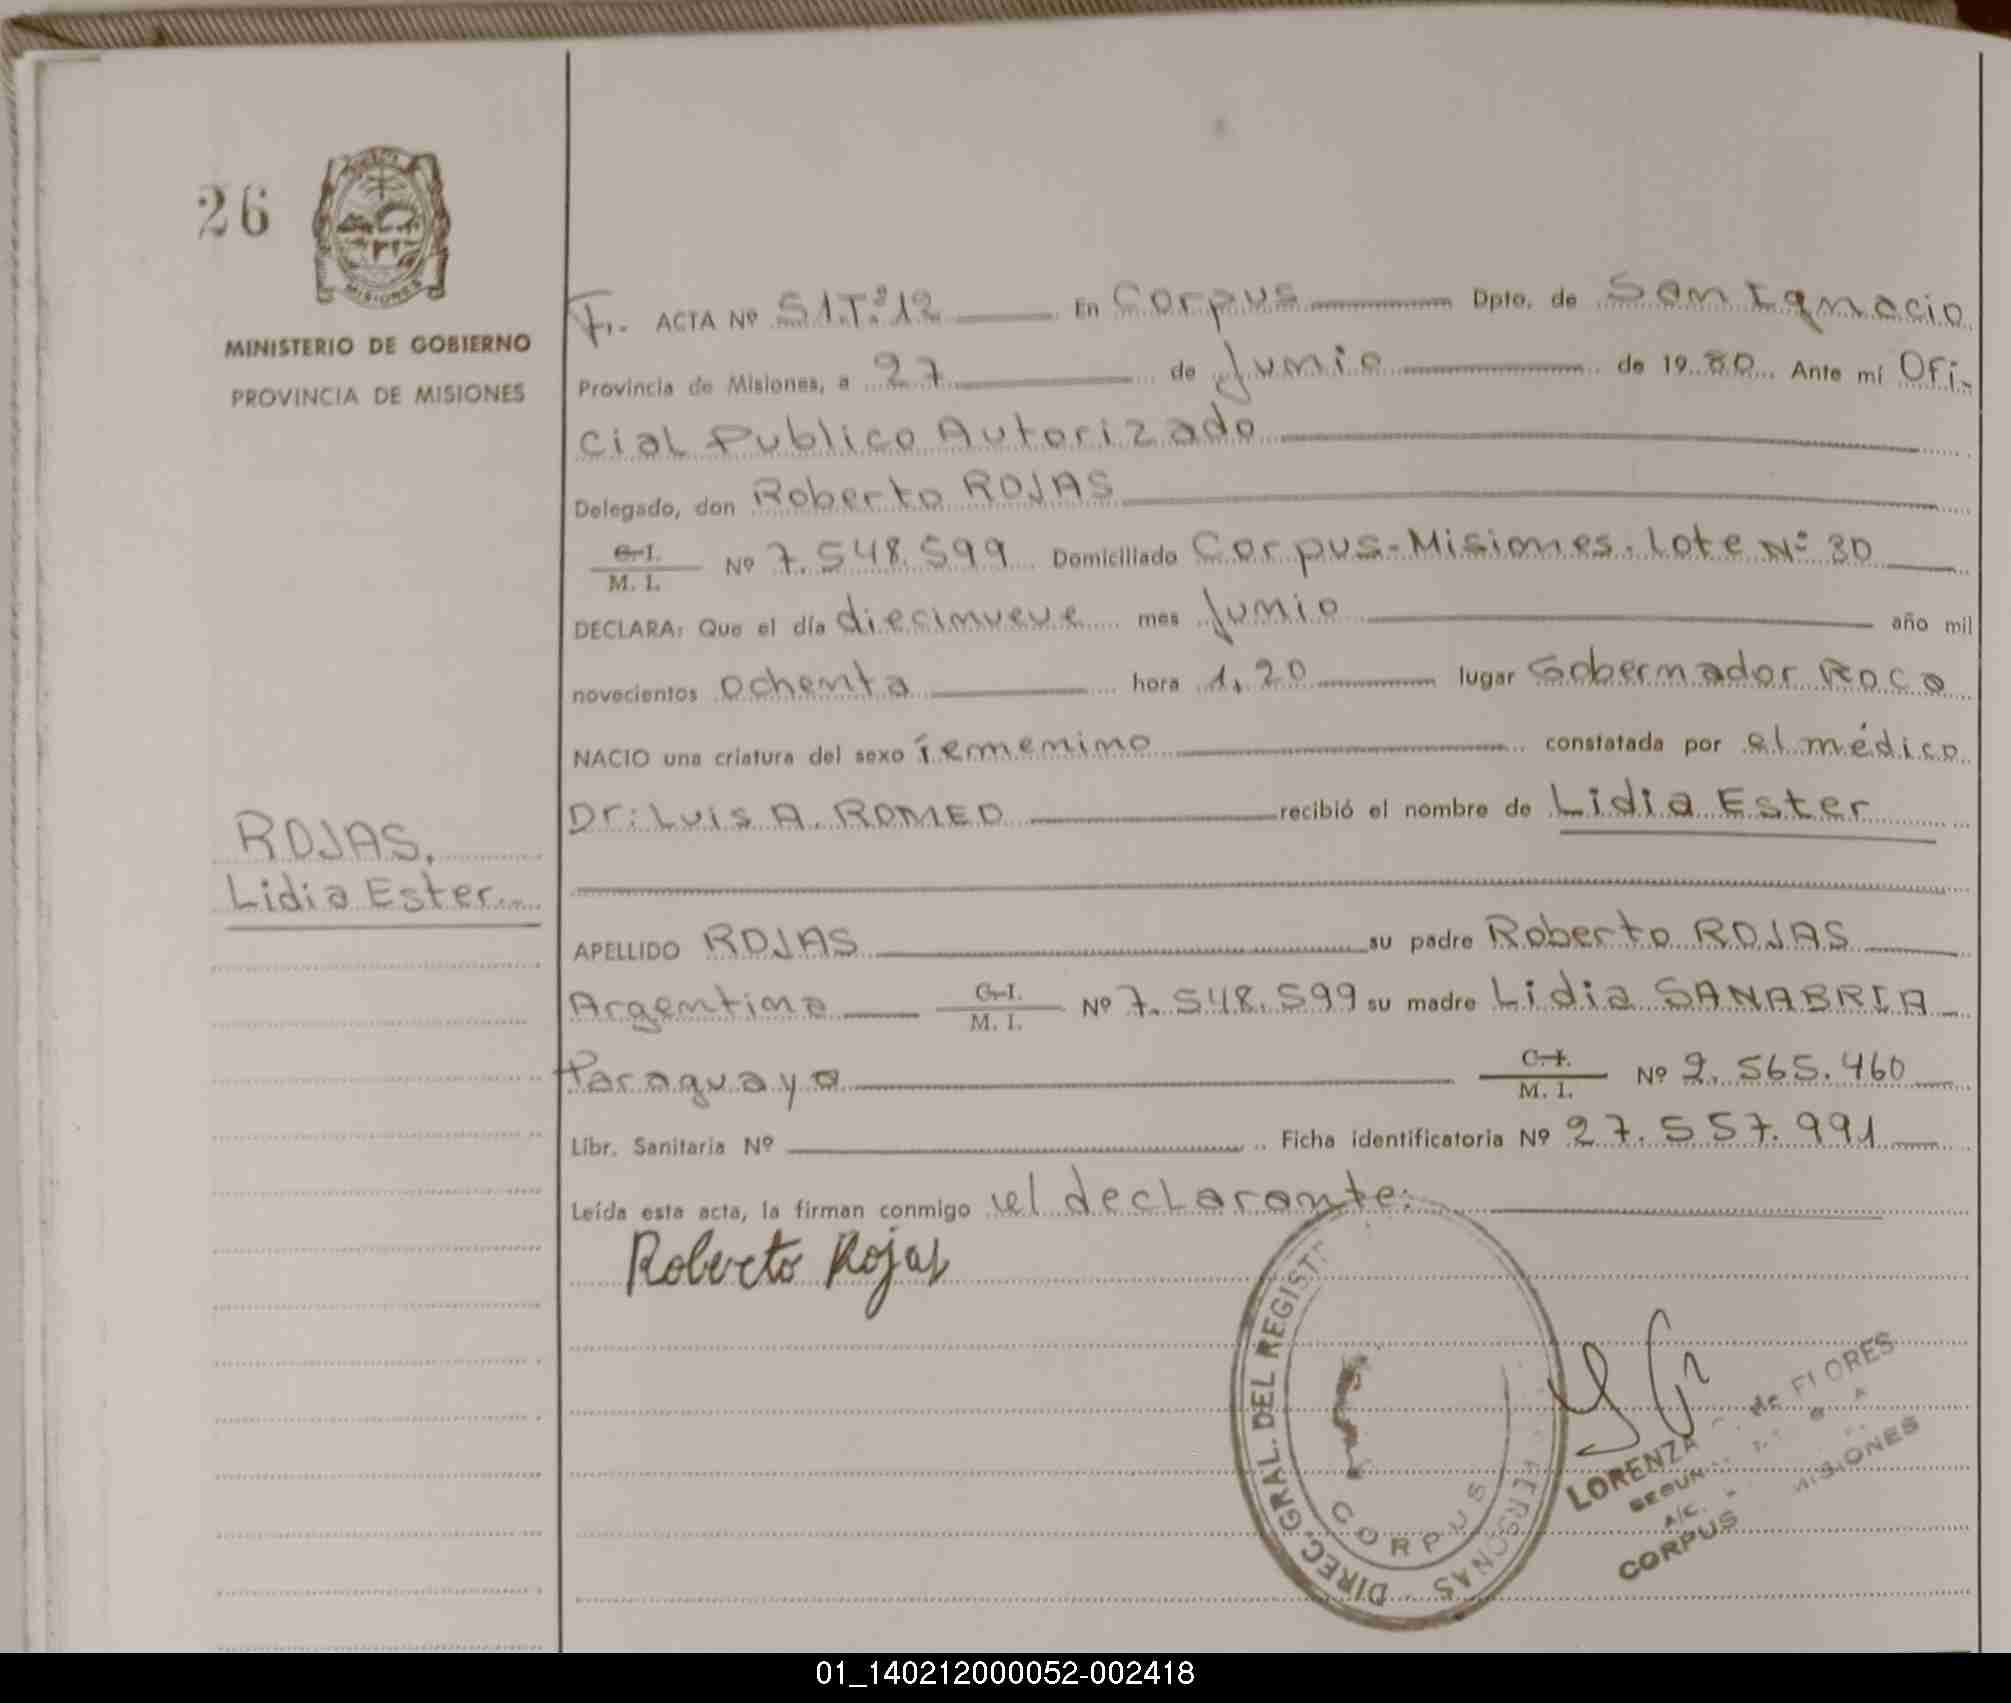 26
MISIONES
MINISTERIO DE GOBIERNO
PROVINCIA DE MISIONES
ROJAS,
Lidia Ester
F. ACTA Nº 51.Tº.12 En Corpus Dpto. de San Ignacio
Provincia de Misiones, a 27 de Junio de 1980 Ante mí Ofi-
cial Publico Autorizado
Delegado, don Roberto ROJAS
C.I.
M. I. Nº 7.548.599 Domiciliado Corpus-Misiones. Lote Nº 30
DECLARA: Que el día diecinueve mes Junio año mil
novecientos ochenta hora 1,20 lugar Gobernador Roca
NACIO una criatura del sexo femenino constatada por el médico
Dr: Luis A. ROMEO recibió el nombre de Lidia Ester
APELLIDO ROJAS su padre Roberto ROJAS
Argentina C.I. M. I. Nº 7.548.599 su madre Lidia SANABRIA
Paraguaya C.I. M. I. Nº 2.565.460
Libr. Sanitaria Nº Ficha identificatoria Nº 27.557.991
Leída esta acta, la firman conmigo el declarante.
Roberto Rojas
DIREC. GRAL. DEL REGIST PERSONAS
CORPUS
LORENZA de FLORES
CORPUS MISIONES
01_140212000052-002418